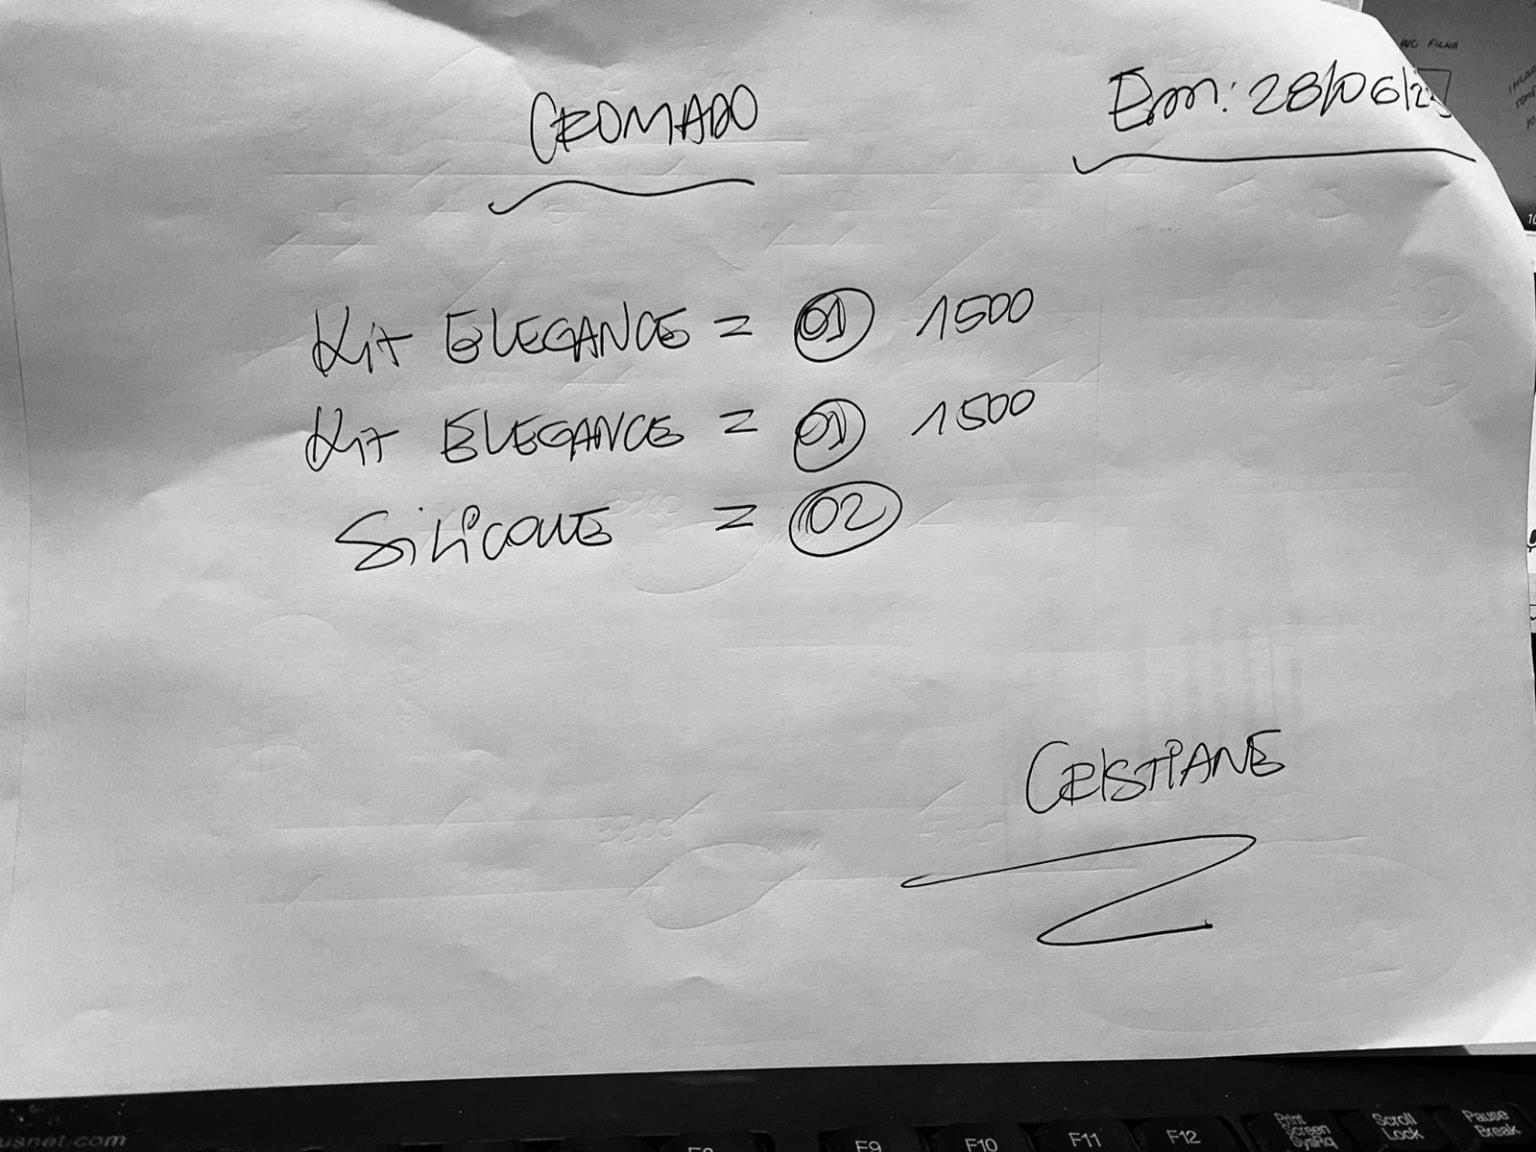 CROMADO
Em: 28/06/2
Kit ELEGANCE = 01 1500
Kit ELEGANCE = 01 1500
SiLiCONE = 02
CRISTIANE
WC FILHA
usnet.com
F9 F10 F11 F12 Print Screen SysRq Scroll Lock Pause Break